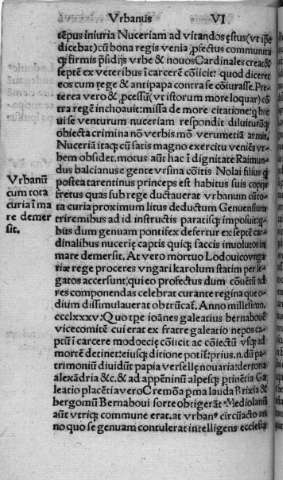 Vrbanus VI
tẽpus iniuria Nuceriam ad vitandos ẽstus (vt ipse
dicebat) cũ bona regis venia ꝓfectus communita
firmis p̃sidijs vrbe & nouos Cardinales creat &
septẽ ex veteribus ĩ carcerẽ cõijcit: quod diceret
eos cum rege & antipapa contra se cõiurasse. Pre
terea vero & ꝓcessũ (vt istorum more loquar) cõ
tra regẽ inchoauit: missa de more citatione
se venturum nuceriam respondit diluiturũ
obiecta crimina nõ verbis mõ verumetiã armis.
Nuceriã itaqꝫ cũ satis magno exercitu veniẽs vr
bem obsidet. motus aũt hac ĩ dignitate Raimun
dus balcianus e gente vrsina cõitis Nolai filius
postea tarentinus princeps est habitus suis copijs
fretus quas sub rege ductauerat vrbanum cũ to
ta curia proximum litus deductum Genuensium
triremibus ad id instructis paratisqꝫ imposuit
bus dum genuam pontifex defertur ex septẽ car
dinalibus nucerię captis quinqꝫ saccis inuolutos in
mare demersit. At vero mortuo Lodouico vnga
rię rege proceres vngari karolum statim per le
gatos accersunt, qui eo profectus dum cõuentũ ad
res componendas celebrat curante regina que o
dium dissimulauerat obtrũcat̃. Anno millesimo.
ccclxxxv. Quo tpe ioãnes galeatius bernaboue
vicecomitẽ cui erat ex fratre galeatio nepos ca
ptũ ĩ carcere modoecię cõiicit ac cõiectũ vsqꝫ ad
mortẽ detinet: eiusqꝫ ditione potit̃
trimoniũ diuidũt papia versellę nouaria: dertona
alexãdria &c. & ad appẽninũ alpesqꝫ
leatio placẽtia vero Cremõa pma lauda Brixia &
bergomũ Bernaboui sorte obtigerãt Mediolanũ
aũt vtriqꝫ commune erat. at vrbanus circũacto an
no quo se genuam contulerat intelligens ecclesię
Vrbanũ
cum tota
curia ĩ ma
re demer
sit.